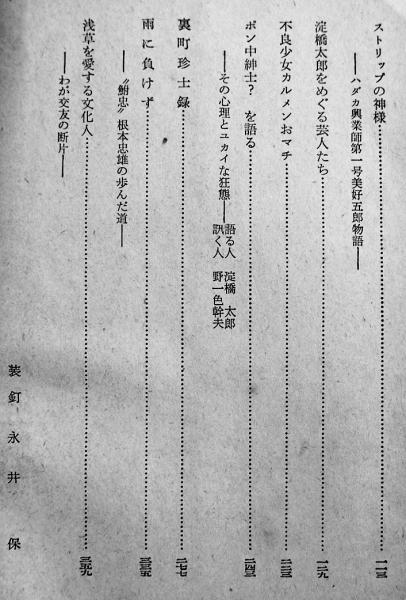 ストリップの神様……一一三
――ハダカ興業師第一号美好五郎物語――
淀橋太郎をめぐる芸人たち……一二九
不良少女カルメンおマチ……二三三
ポン中紳士? を語る……二四三
――その心理とユカイな狂態――
語る人 淀橋 太郎
訊く人 野一色幹夫
裏町珍士録……二七七
雨に負けず……三三五
――〝鮒忠〟根本忠雄の歩んだ道――
浅草を愛する文化人……三五九
――わが交友の断片――
装釘 永井 保